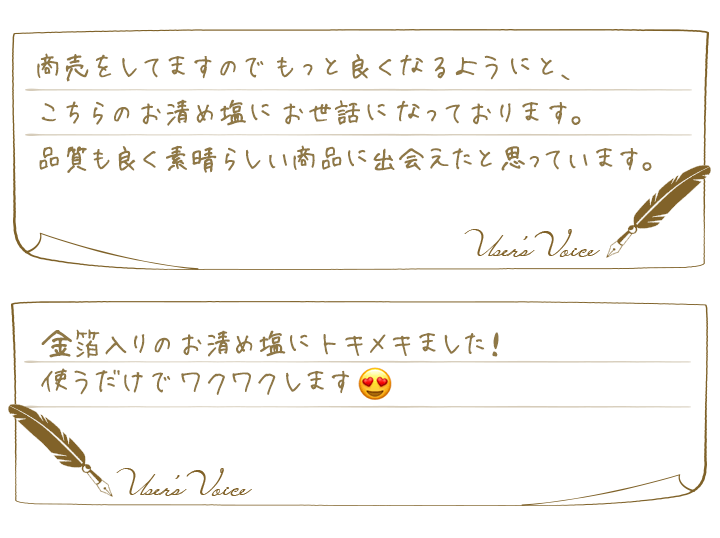 商売をしてますのでもっと良くなるようにと、
こちらのお清め塩にお世話になっております。
品質も良く素晴らしい商品に出会えたと思っています。
User's Voice
金箔入りのお清め塩にトキメキました!
使うだけでワクワクします😍
User's Voice